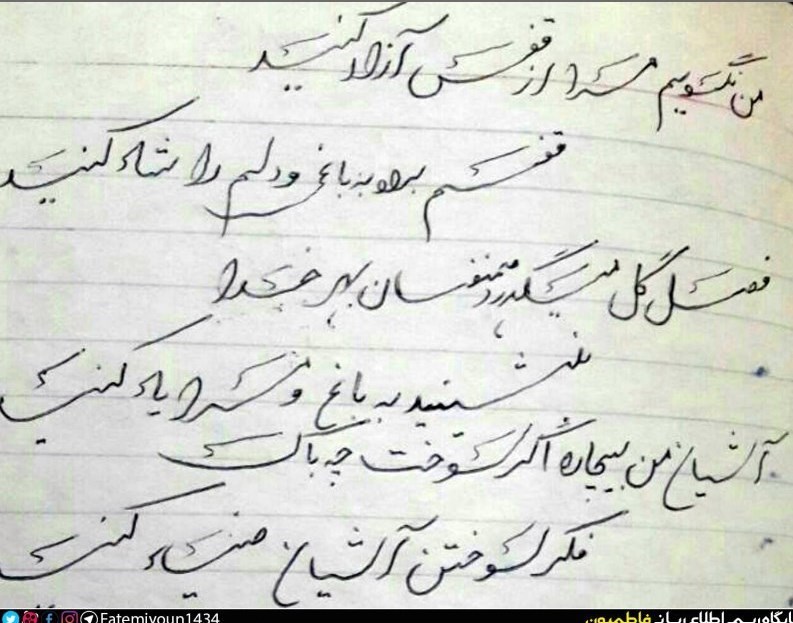 من نگویم مرا از قفس آزاد کنید
قفسم برده به باغی و دلم را شاد کنید
فصل گل میگذرد همنفسان بهر خدا
بنشینید به باغی و مرا یاد کنید
آشیان من بیچاره اگر سوخت چه باک
فکر سوختن آشیان صیاد کنید
Fatemiyoun1434
پایگاه رسمی اطلاع رسانی فاطمیون